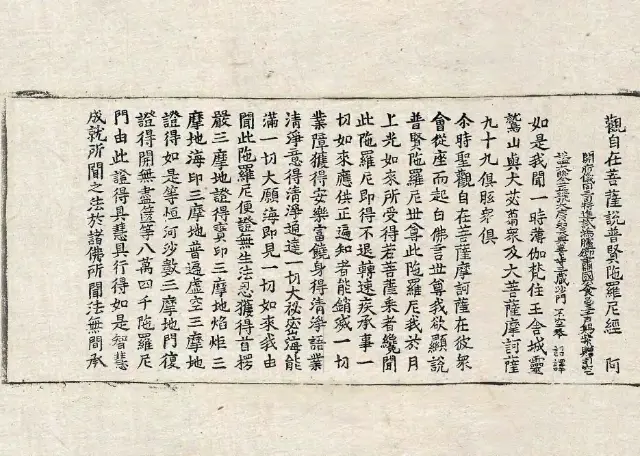 觀自在菩薩說普賢陀羅尼經 阿
開府儀同三司特進試鴻臚卿肅國公食邑三千戶賜紫贈司空
謚大鑒正號大廣智大興善寺三藏沙門不空奉 詔譯
如是我聞一時薄伽梵住王舍城靈
鷲山與大苾蒭眾及大菩薩摩訶薩
九十九俱胝眾俱
尒時聖觀自在菩薩摩訶薩在彼眾
會從座而起白佛言世尊我欲顯說
普賢陀羅尼世尊此陀羅尼我於月
上光如來所受得若菩薩乘者纔聞
此陀羅尼即得不退轉速疾承事一
切如來應供正遍知者能銷滅一切
業障獲得安樂富饒身得清淨語業
清淨意得清淨通達一切大祕密海能
滿一切大願海即見一切如來我由
聞此陀羅尼便證無生法忍獲得首楞
嚴三摩地證得寶印三摩地焰炬三
摩地海印三摩地普遍虛空三摩地
證得如是等恒河沙數三摩地門復
證得開無盡篋等八萬四千陀羅尼
門由此證得具慧具行得如是智慧
成就所聞之法於諸佛所聞法無間承